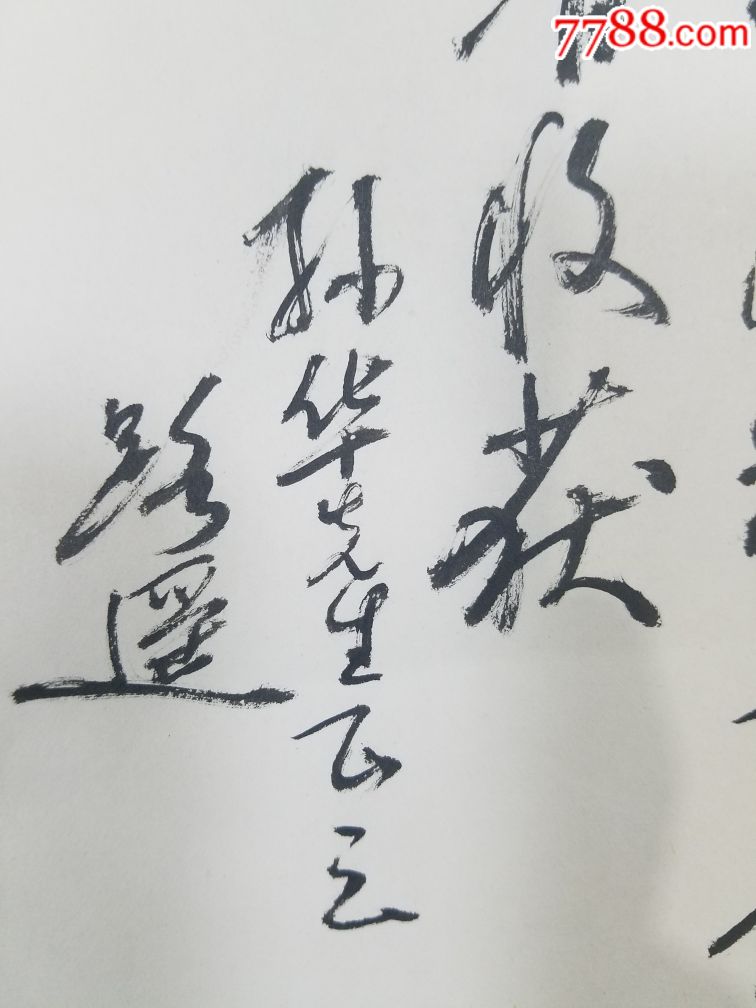 7788.com
收获
孙华先生正之
路遥